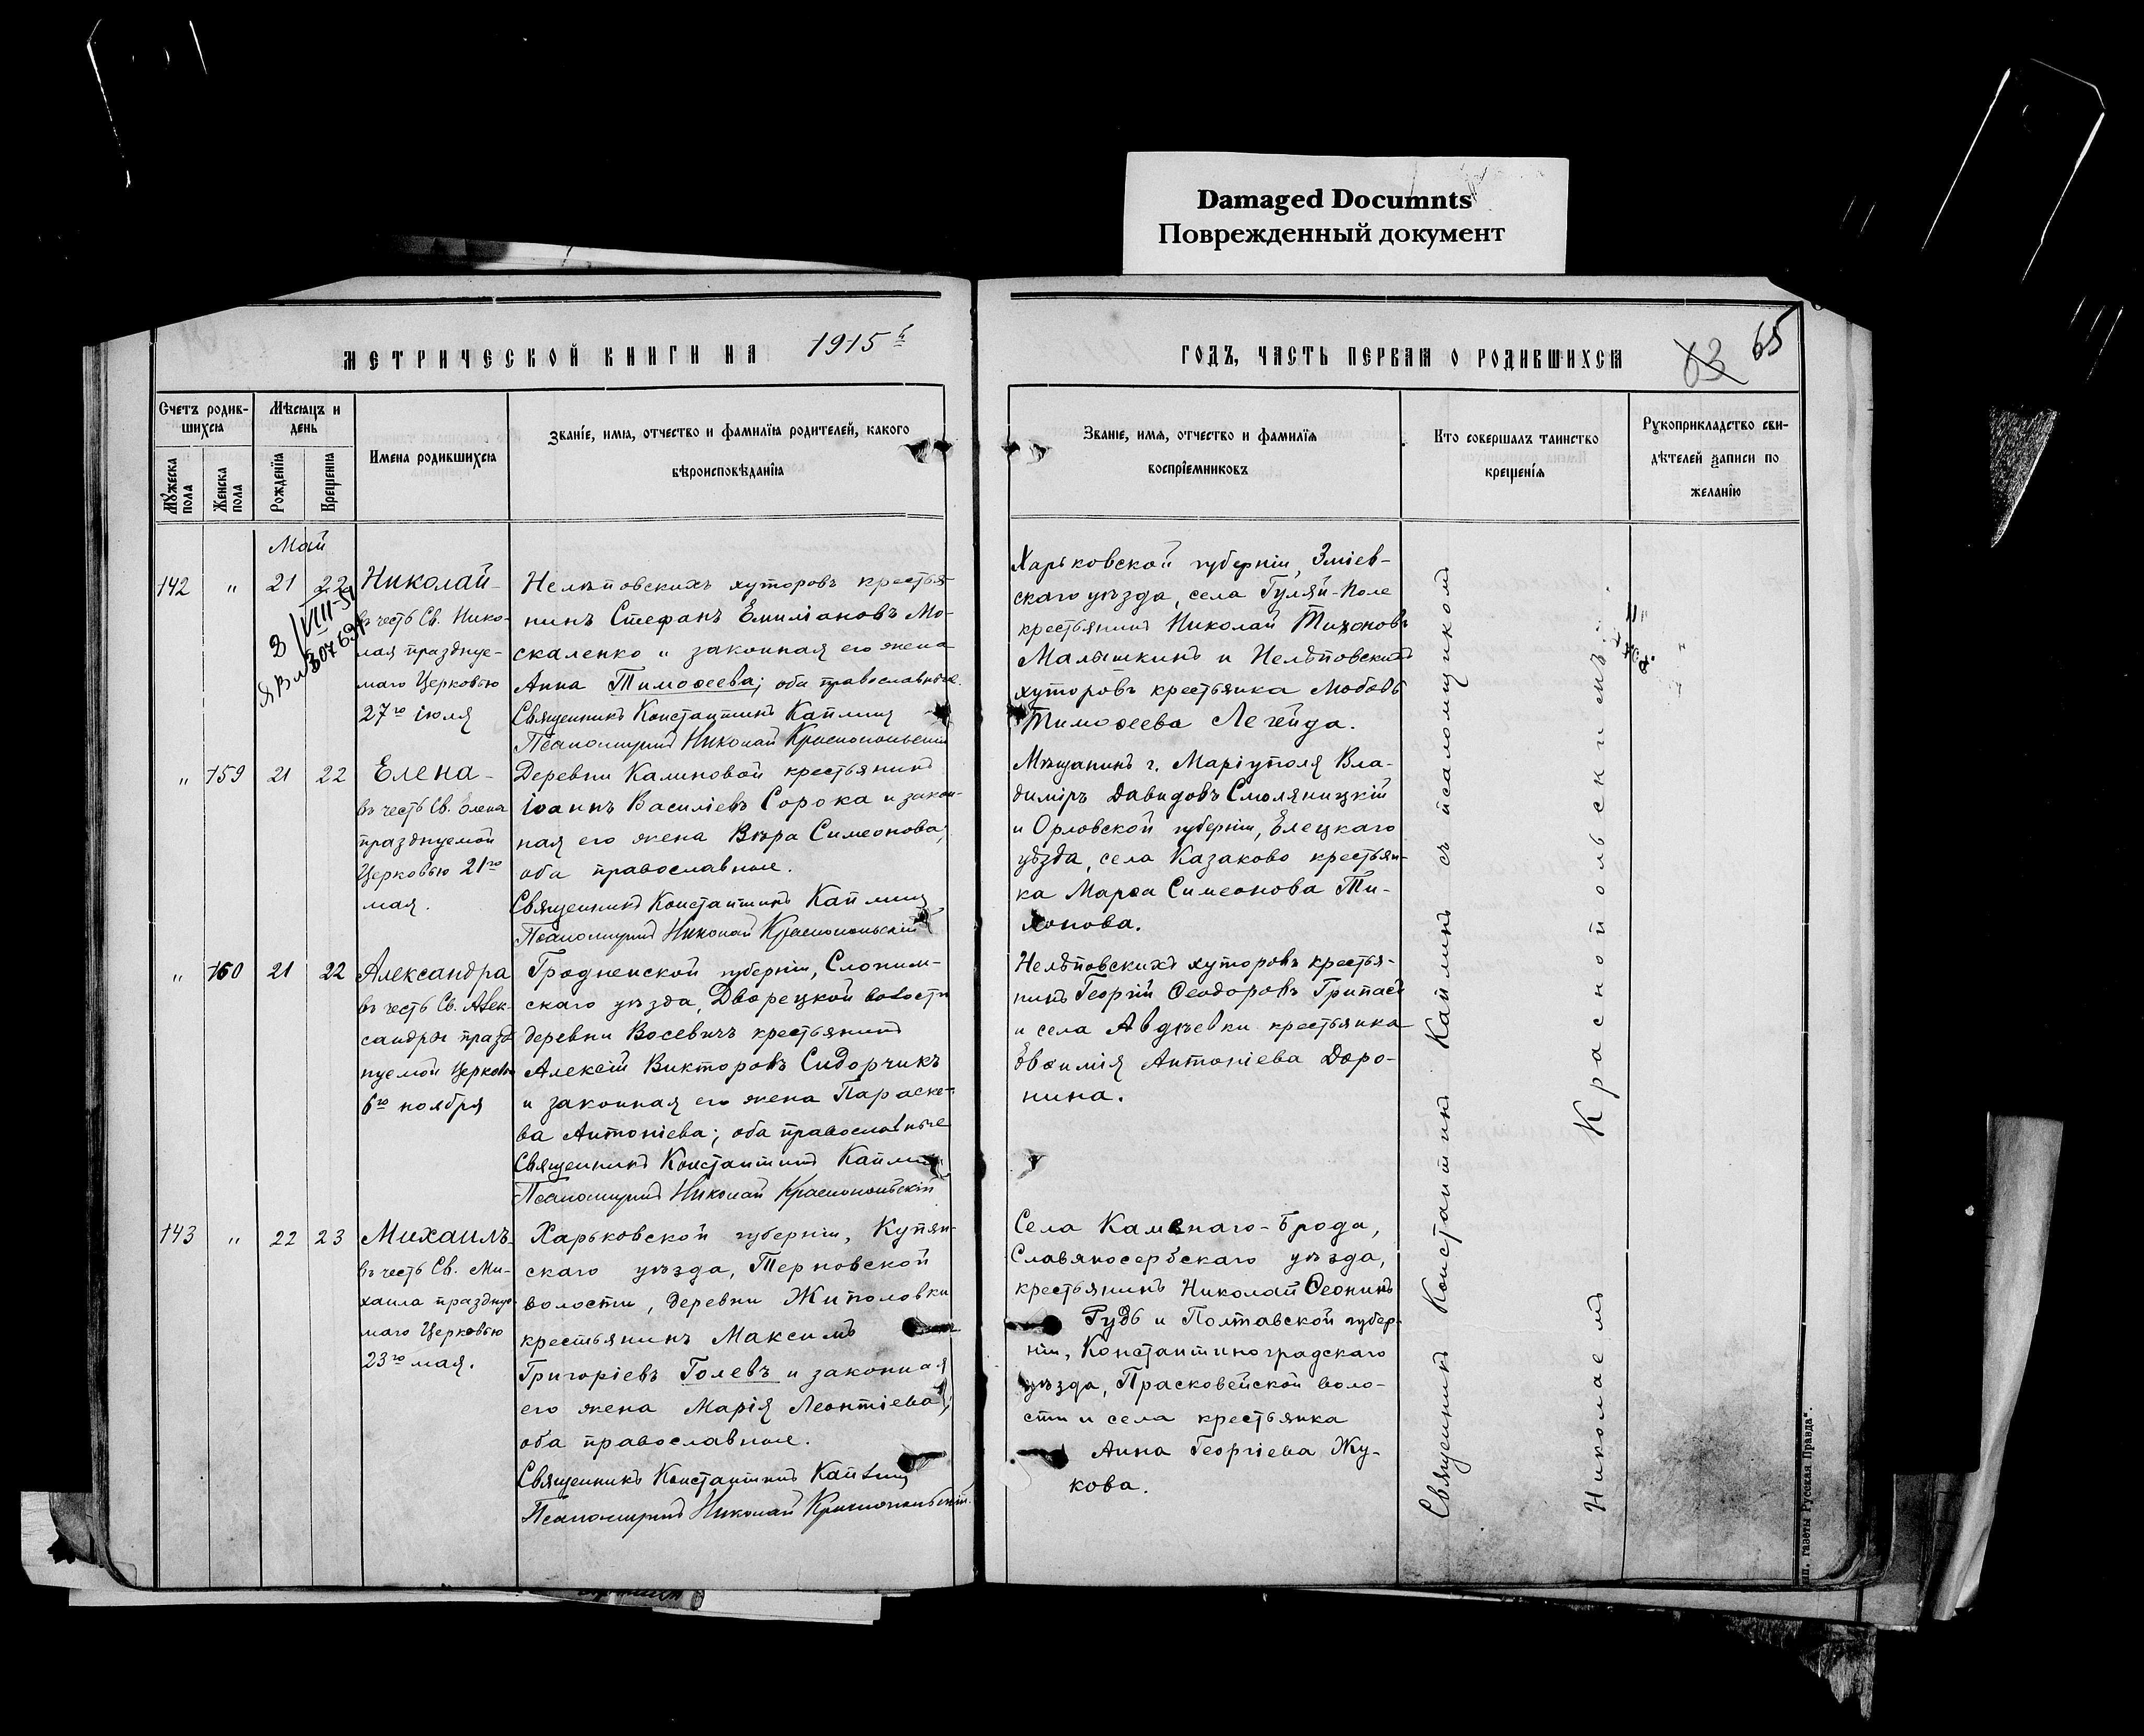 Damaged Documnts
Поврежденный документ
МЕТРИЧЕСКОЙ КНИГИ НА 1915 г.
ГОДЪ, ЧАСТЬ ПЕРВАЯ О РОДИВШИХСЯ
83 65
Счетъ родив-
шихся
Мужеска пола
Женска пола
Мѣсяцъ и
день
Рожденія
Крещенія
Имена родившихся
Званіе, имя, отчество и фамилія родителей, какого
вѣроисповѣданія
Званіе, имя, отчество и фамилія
воспріемниковъ
Кто совершалъ таинство
крещенія
Рукоприкладство сви-
дѣтелей записи по
желанію
Май
142 " 21 22
Николай
въ честь Св. Нико-
лая праздн­уе-
маго Церковью
27го іюля
Нелѣповскихъ хуторовъ крестья-
нинъ Стефанъ Емиліановъ Мо-
скаленко и законная его жена
Анна Тимоѳеева; оба православные.
Священникъ Константинъ Каплинъ
Псаломщикъ Николай Краснопольскій
Харьковской губерніи, Зміев-
скаго уѣзда, села Гуляй-Поле
крестьянинъ Николай Тихоновъ
Малышкинъ и Нелѣповскихъ
хуторовъ крестьянка Любовь
Тимоѳеева Легейда.
" 159 21 22
Елена
въ честь Св. Елены
празднуемой
Церковью 21го
мая.
Деревни Калиновой крестьянинъ
Іоаннъ Василіевъ Сорока и закон-
ная его жена Вѣра Симеонова;
оба православные.
Священникъ Константинъ Каплинъ
Псаломщикъ Николай Краснопольскій
Мѣщанинъ г. Маріуполя Вла-
диміръ Давидовъ Смоляницкій
и Орловской губерніи, Елецкаго
уѣзда, села Казаково крестьян-
ка Марѳа Симеонова Ти-
хонова.
" 160 21 22
Александра
въ честь Св. Алек-
сандры празд-
нуемой Церковью
6го ноября
Гродненской губерніи, Слоним-
скаго уѣзда, Дворецкой волости
деревни Восевичъ крестьянинъ
Алексій Викторовъ Сидорчикъ
и законная его жена Параске-
ва Антоніева; оба православные
Священникъ Константинъ Каплинъ
Псаломщикъ Николай Краснопольскій
Нелѣповскихъ хуторовъ крестья-
нинъ Георгій Ѳеодоровъ Припасъ
и села Авдѣевки крестьянка
Евѳимія Антоніева Доро-
нина.
143 " 22 23
Михаилъ
въ честь Св. Ми-
хаила праздн­уе-
маго Церковью
23го мая.
Харьковской губерніи, Купян-
скаго уѣзда, Терновской
волости, деревни Жиполовки
крестьянинъ Максимъ
Григоріевъ Голевъ и законная
его жена Марія Леонтіева;
оба православные.
Священникъ Константинъ Каплинъ
Псаломщикъ Николай Краснопольскій.
Села Каменнаго-Брода,
Славяносербскаго уѣзда,
крестьянинъ Николай Ѳеонинъ
Гудь и Полтавской губер-
ніи, Константиноградскаго
уѣзда, Прасковейской воло-
сти и села крестьянка
Анна Георгіева Жу-
кова.
Священникъ Константинъ Каплинъ съ псаломщикомъ
Николаемъ Краснопольскимъ.
газеты Русская Правда".